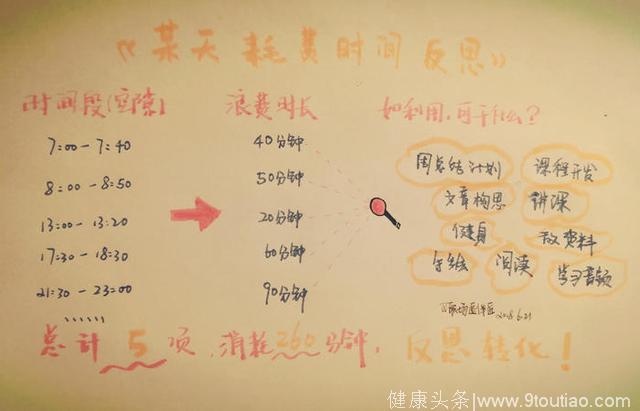 《某天耗费时间反思》
时间段(空隙) 浪费时长 如利用,可干什么?
7:00-7:40 40分钟
8:00-8:50 50分钟
13:00-13:20 20分钟
17:30-18:30 60分钟
21:30-23:00 90分钟
……
周总结计划 课程开发
文章构思 讲课
健身 敲资料
手绘 阅读 学习音频
2018.6.21
总计5项,消耗260分钟,反思转化!
健康头条/www.9toutiao.com